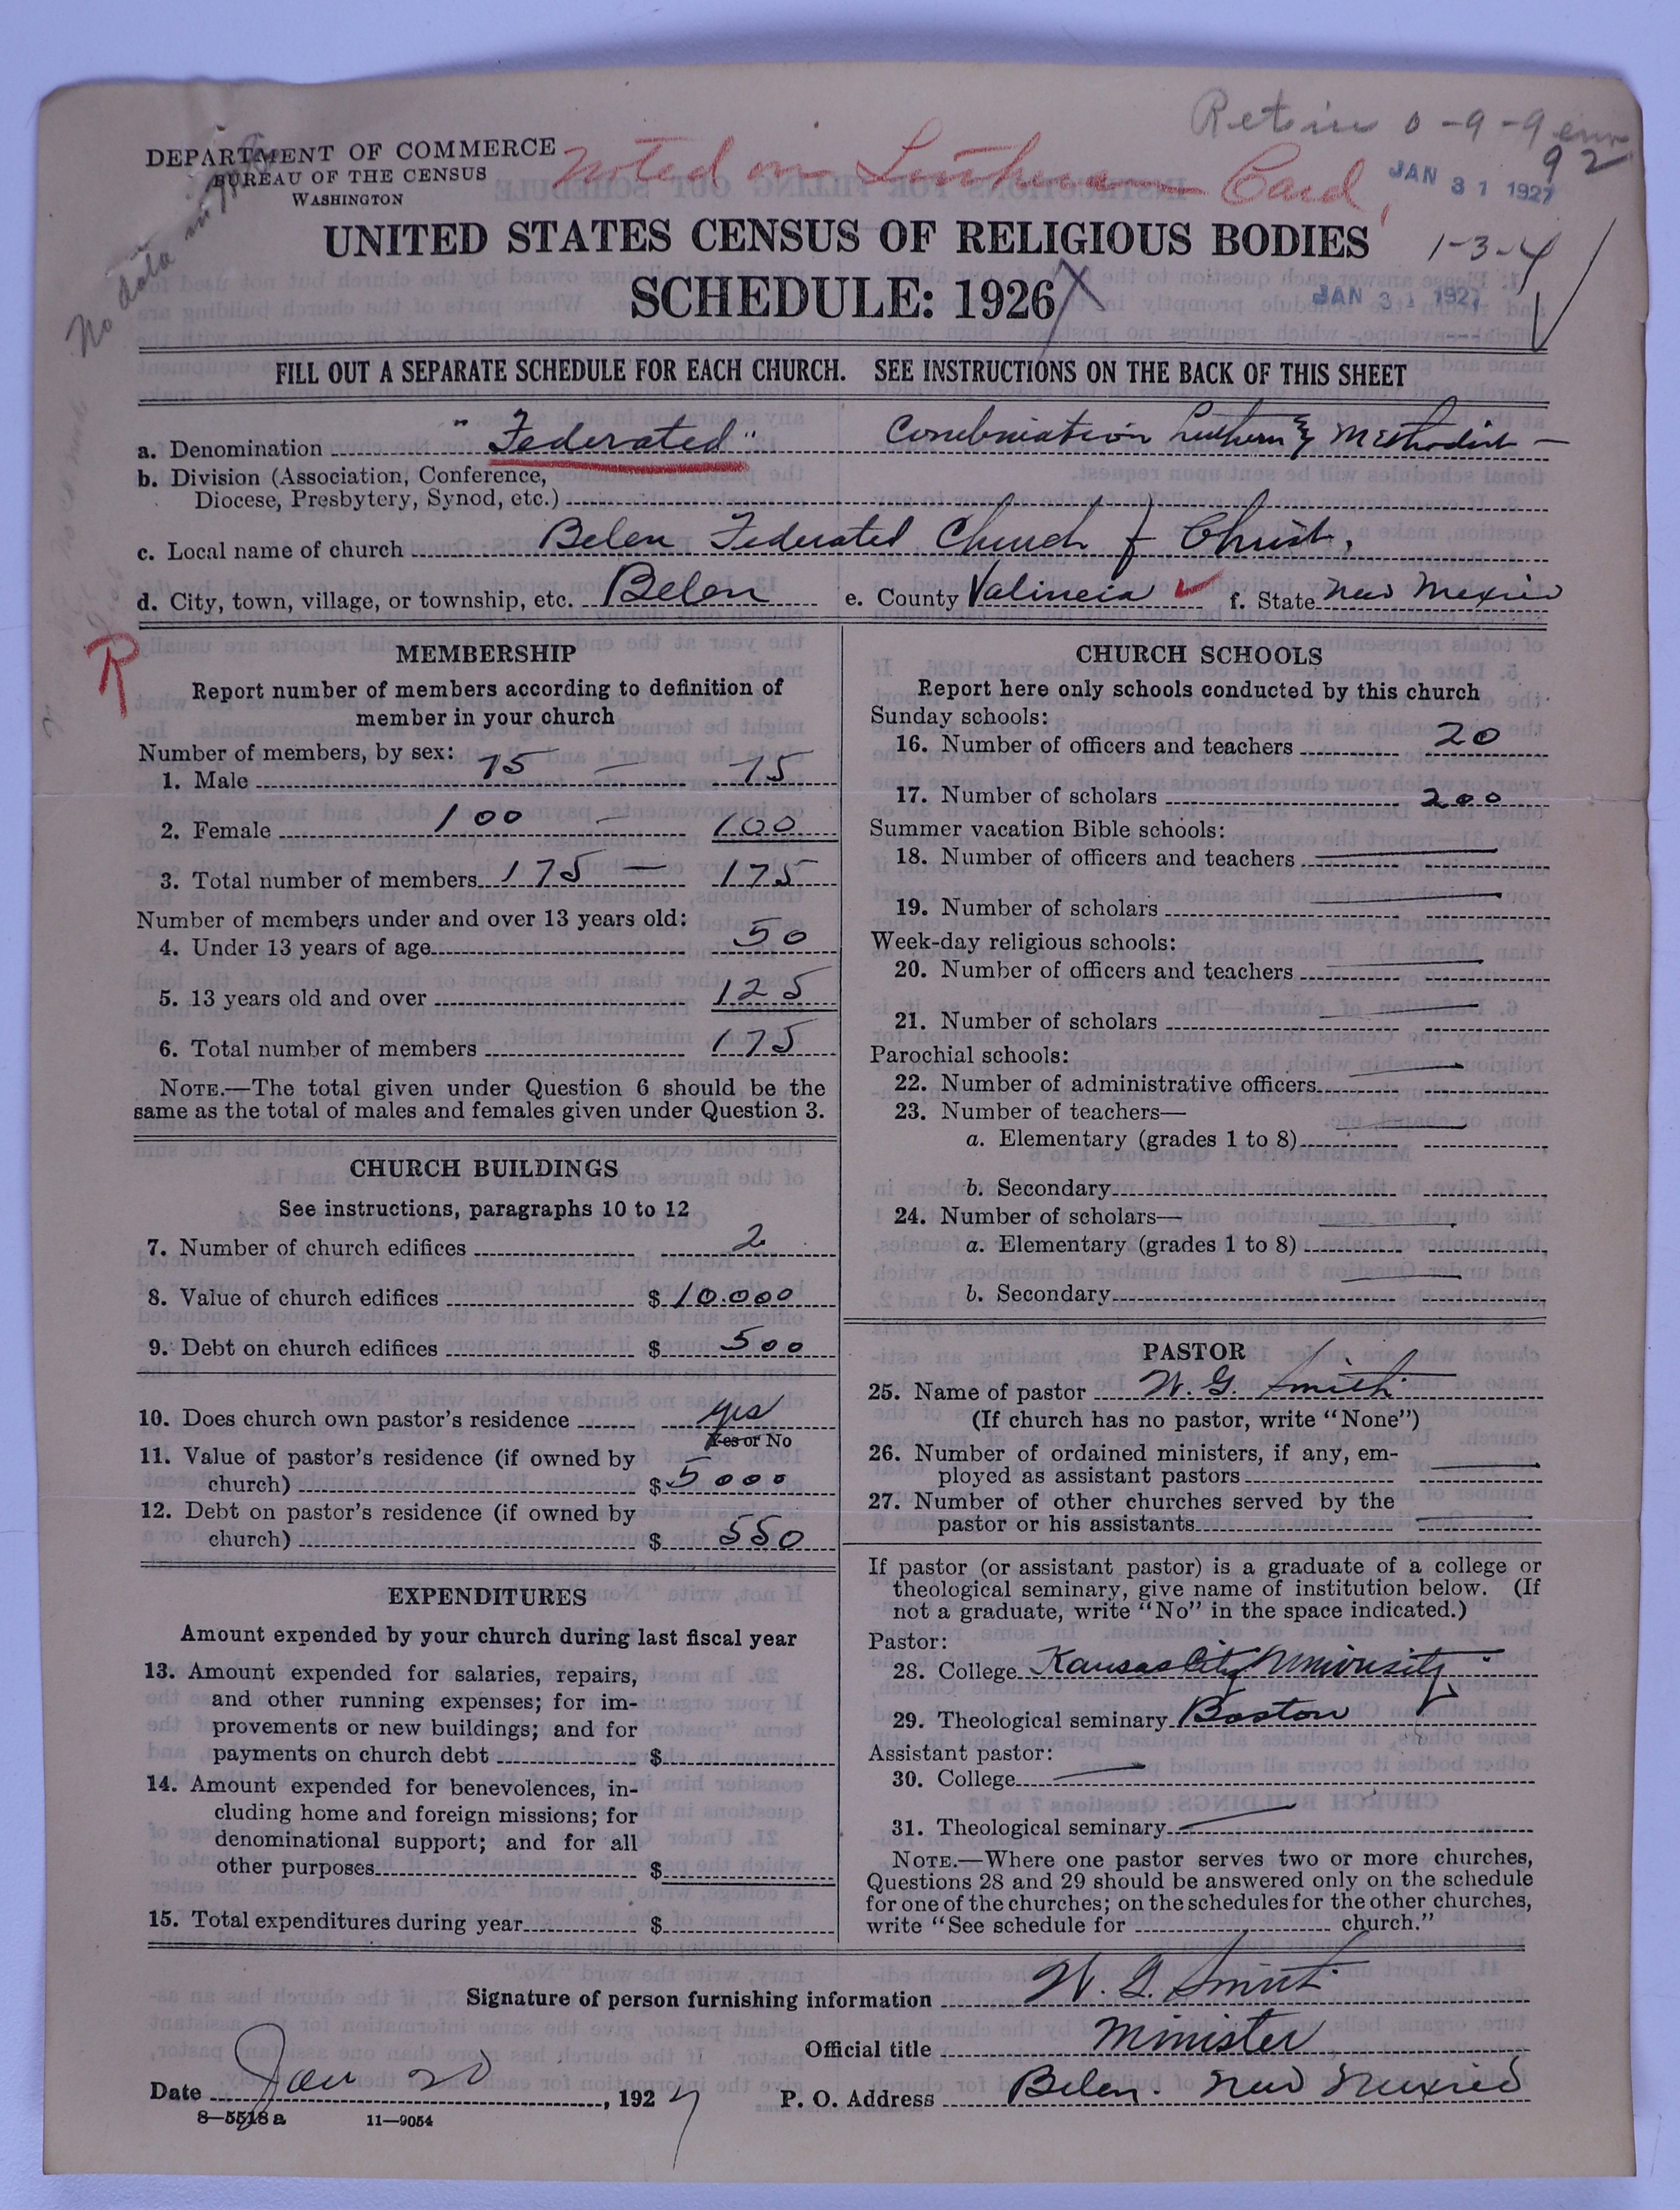 Retain 0-9-9
92
DEPARTMENT OF COMMERCE
BUREAU OF THE CENSUS
WASHINGTON
Noted on Lutheran Card,
JAN 31 1927
No data
UNITED STATES CENSUS OF RELIGIOUS BODIES
1-3-4
SCHEDULE: 1926
JAN 31 1927
FILL OUT A SEPARATE SCHEDULE FOR EACH CHURCH. SEE INSTRUCTIONS ON THE BACK OF THIS SHEET
a. Denomination "Federated" Combination Luthern & Methodist —
b. Division (Association, Conference,
Diocese, Presbytery, Synod, etc.)
c. Local name of church Belen Federated Church of Christ.
d. City, town, village, or township, etc. Belen e. County Valincia f. State New Mexico
R
MEMBERSHIP
Report number of members according to definition of
member in your church
Number of members, by sex:
1. Male 75 — 75
2. Female 100 — 100
3. Total number of members 175 — 175
Number of members under and over 13 years old:
4. Under 13 years of age 50
5. 13 years old and over 125
6. Total number of members 175
NOTE.—The total given under Question 6 should be the
same as the total of males and females given under Question 3.
CHURCH BUILDINGS
See instructions, paragraphs 10 to 12
7. Number of church edifices 2
8. Value of church edifices $10.000
9. Debt on church edifices $500
10. Does church own pastor's residence yes
Yes or No
11. Value of pastor's residence (if owned by
church) $5000
12. Debt on pastor's residence (if owned by
church) $550
EXPENDITURES
Amount expended by your church during last fiscal year
13. Amount expended for salaries, repairs,
and other running expenses; for im-
provements or new buildings; and for
payments on church debt $
14. Amount expended for benevolences, in-
cluding home and foreign missions; for
denominational support; and for all
other purposes $
15. Total expenditures during year $
CHURCH SCHOOLS
Report here only schools conducted by this church
Sunday schools:
16. Number of officers and teachers 20
17. Number of scholars 200
Summer vacation Bible schools:
18. Number of officers and teachers —
19. Number of scholars —
Week-day religious schools:
20. Number of officers and teachers —
21. Number of scholars —
Parochial schools:
22. Number of administrative officers —
23. Number of teachers—
a. Elementary (grades 1 to 8) —
b. Secondary
24. Number of scholars—
a. Elementary (grades 1 to 8) —
b. Secondary —
PASTOR
25. Name of pastor W. G. Smith
(If church has no pastor, write "None")
26. Number of ordained ministers, if any, em-
ployed as assistant pastors —
27. Number of other churches served by the
pastor or his assistants —
If pastor (or assistant pastor) is a graduate of a college or
theological seminary, give name of institution below. (If
not a graduate, write "No" in the space indicated.)
Pastor:
28. College Kansas City University
29. Theological seminary Boston
Assistant pastor:
30. College —
31. Theological seminary —
NOTE.—Where one pastor serves two or more churches,
Questions 28 and 29 should be answered only on the schedule
for one of the churches; on the schedules for the other churches,
write "See schedule for church."
Signature of person furnishing information W. G. Smith
Official title Minister
Date Jan 20, 1927 P. O. Address Belen. New Mexico
8—5518 a 11—9054